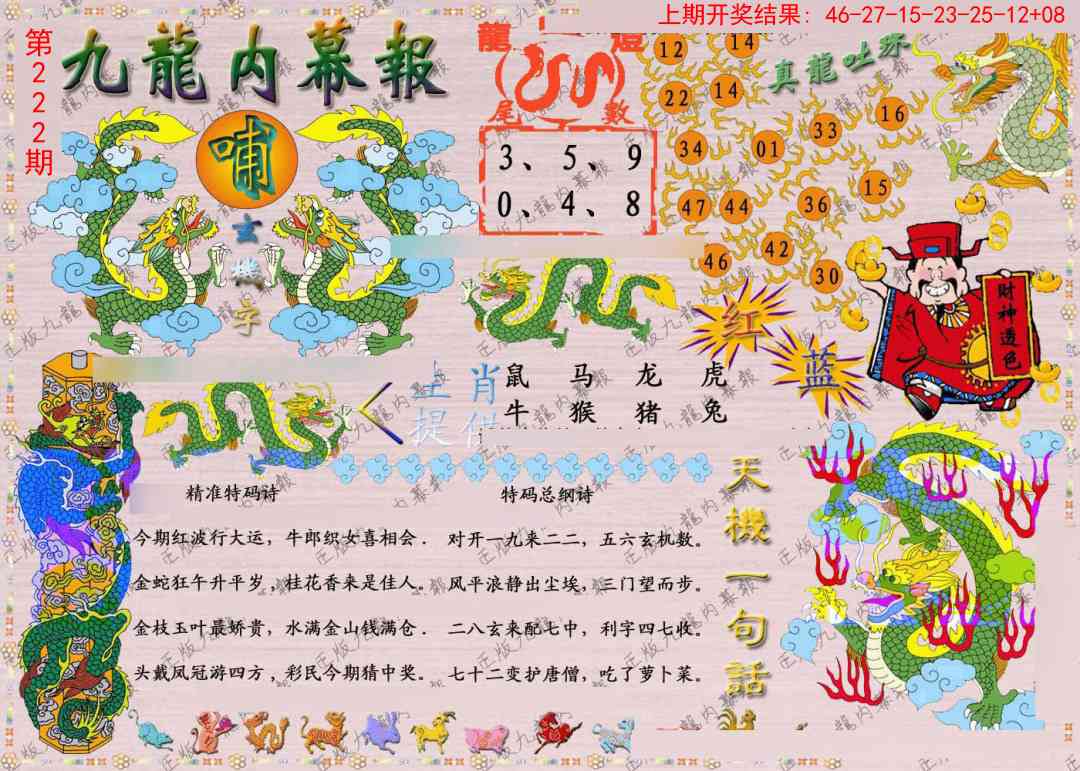 上期开奖结果: 46-27-15-23-25-12+08
第222期
九龍内幕報
哺
玄機字
龍
燈
尾
數
3、5、9
0、4、8
真龍吐珠
12
14
22
14
16
33
34
01
15
47
44
36
42
46
30
财神透色
红
蓝
生肖
提供
鼠 马 龙 虎
牛 猴 猪 兔
天機一句話
精准特码诗
今期红波行大运，牛郎织女喜相会.
金蛇狂午升平岁，桂花香来是佳人。
金枝玉叶最娇贵，水满金山钱满仓.
头戴凤冠游四方，彩民今期猜中奖。
特码总纲诗
对开一九来二二，五六玄机数。
风平浪静出尘埃，三门望而步。
二八玄来配七中，利字四七收。
七十二变护唐僧，吃了萝卜菜。
正版九龍内幕報